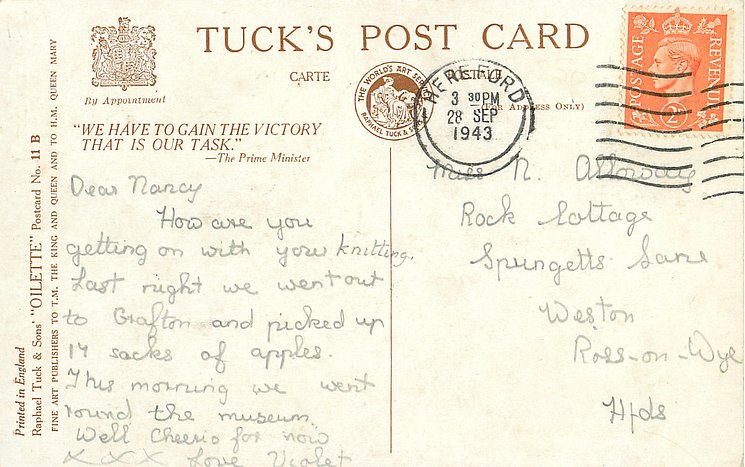 TUCK'S POST CARD
CARTE POSTALE
By Appointment
(FOR ADDRESS ONLY)
THE WORLD'S ART SERVICE
RAPHAEL TUCK & SONS
HEREFORD
3 30 PM
28 SEP
1943
POSTAGE
REVENUE
2D
"WE HAVE TO GAIN THE VICTORY
THAT IS OUR TASK."
—The Prime Minister
Dear Nancy
How are you
getting on with your knitting.
Last night we went out
to Grafton and picked up
14 sacks of apples.
This morning we went
round the museum
Well Cheerio for now
XXX Love Violet
Miss N. Alloway
Rock Cottage
Spungetts Lane
Weston
Ross-on-Wye
Hfds
Printed in England
Raphael Tuck & Sons' "OILETTE" Postcard No. 11 B
FINE ART PUBLISHERS TO T.M. THE KING AND QUEEN AND TO H.M. QUEEN MARY